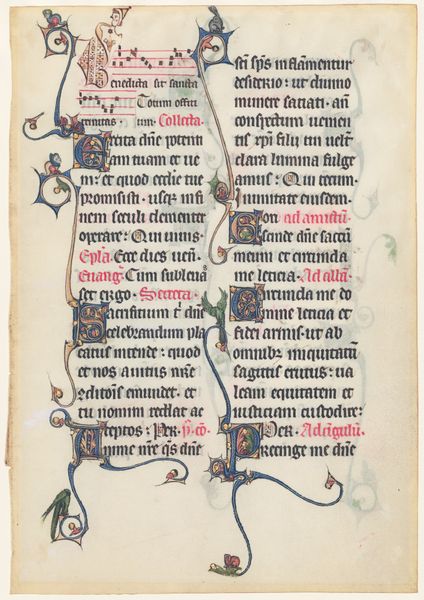 Benedicta sit sancta
Totum offiti
trinitas. um. Collecta.
Excita dñe potenti
am tuam et ue
ni: et quod ecclie tue
promisisti. usqz in fi
nem seculi clementer
operare: Qui uiuis.
Epła. Ecce dies ueni
Euang. Cum subleua
set ergo. Secreta.
Sacrificium dñe
celebrandum pla
catus intende: quod
et nos a uitiis nr̃e
emundet. et
tuo nomini reddat ac
ceptos: Per. p̃. cõ.
Anime nr̃e q̃s dñe
sc̃i sp̃s inflam̃entur
desiderio: ut diuino
munere satiati. an̄
conspectum uenien
tis xp̄i filii tui uelut
clara lumina fulge
amus: Qui tecum.
unitate eiusdem.
ad amictũ.
scinde dñe saccũ
meum et circumda
me leticia. Ad albã.
Circumda me do
mine leticia et
fidei armis. ut ab
omnibz iniquitatũ
sagittis erutus: ua
leam equitatem et
iusticiam custodire:
Per. Ad cingulũ.
Precinge me dñe